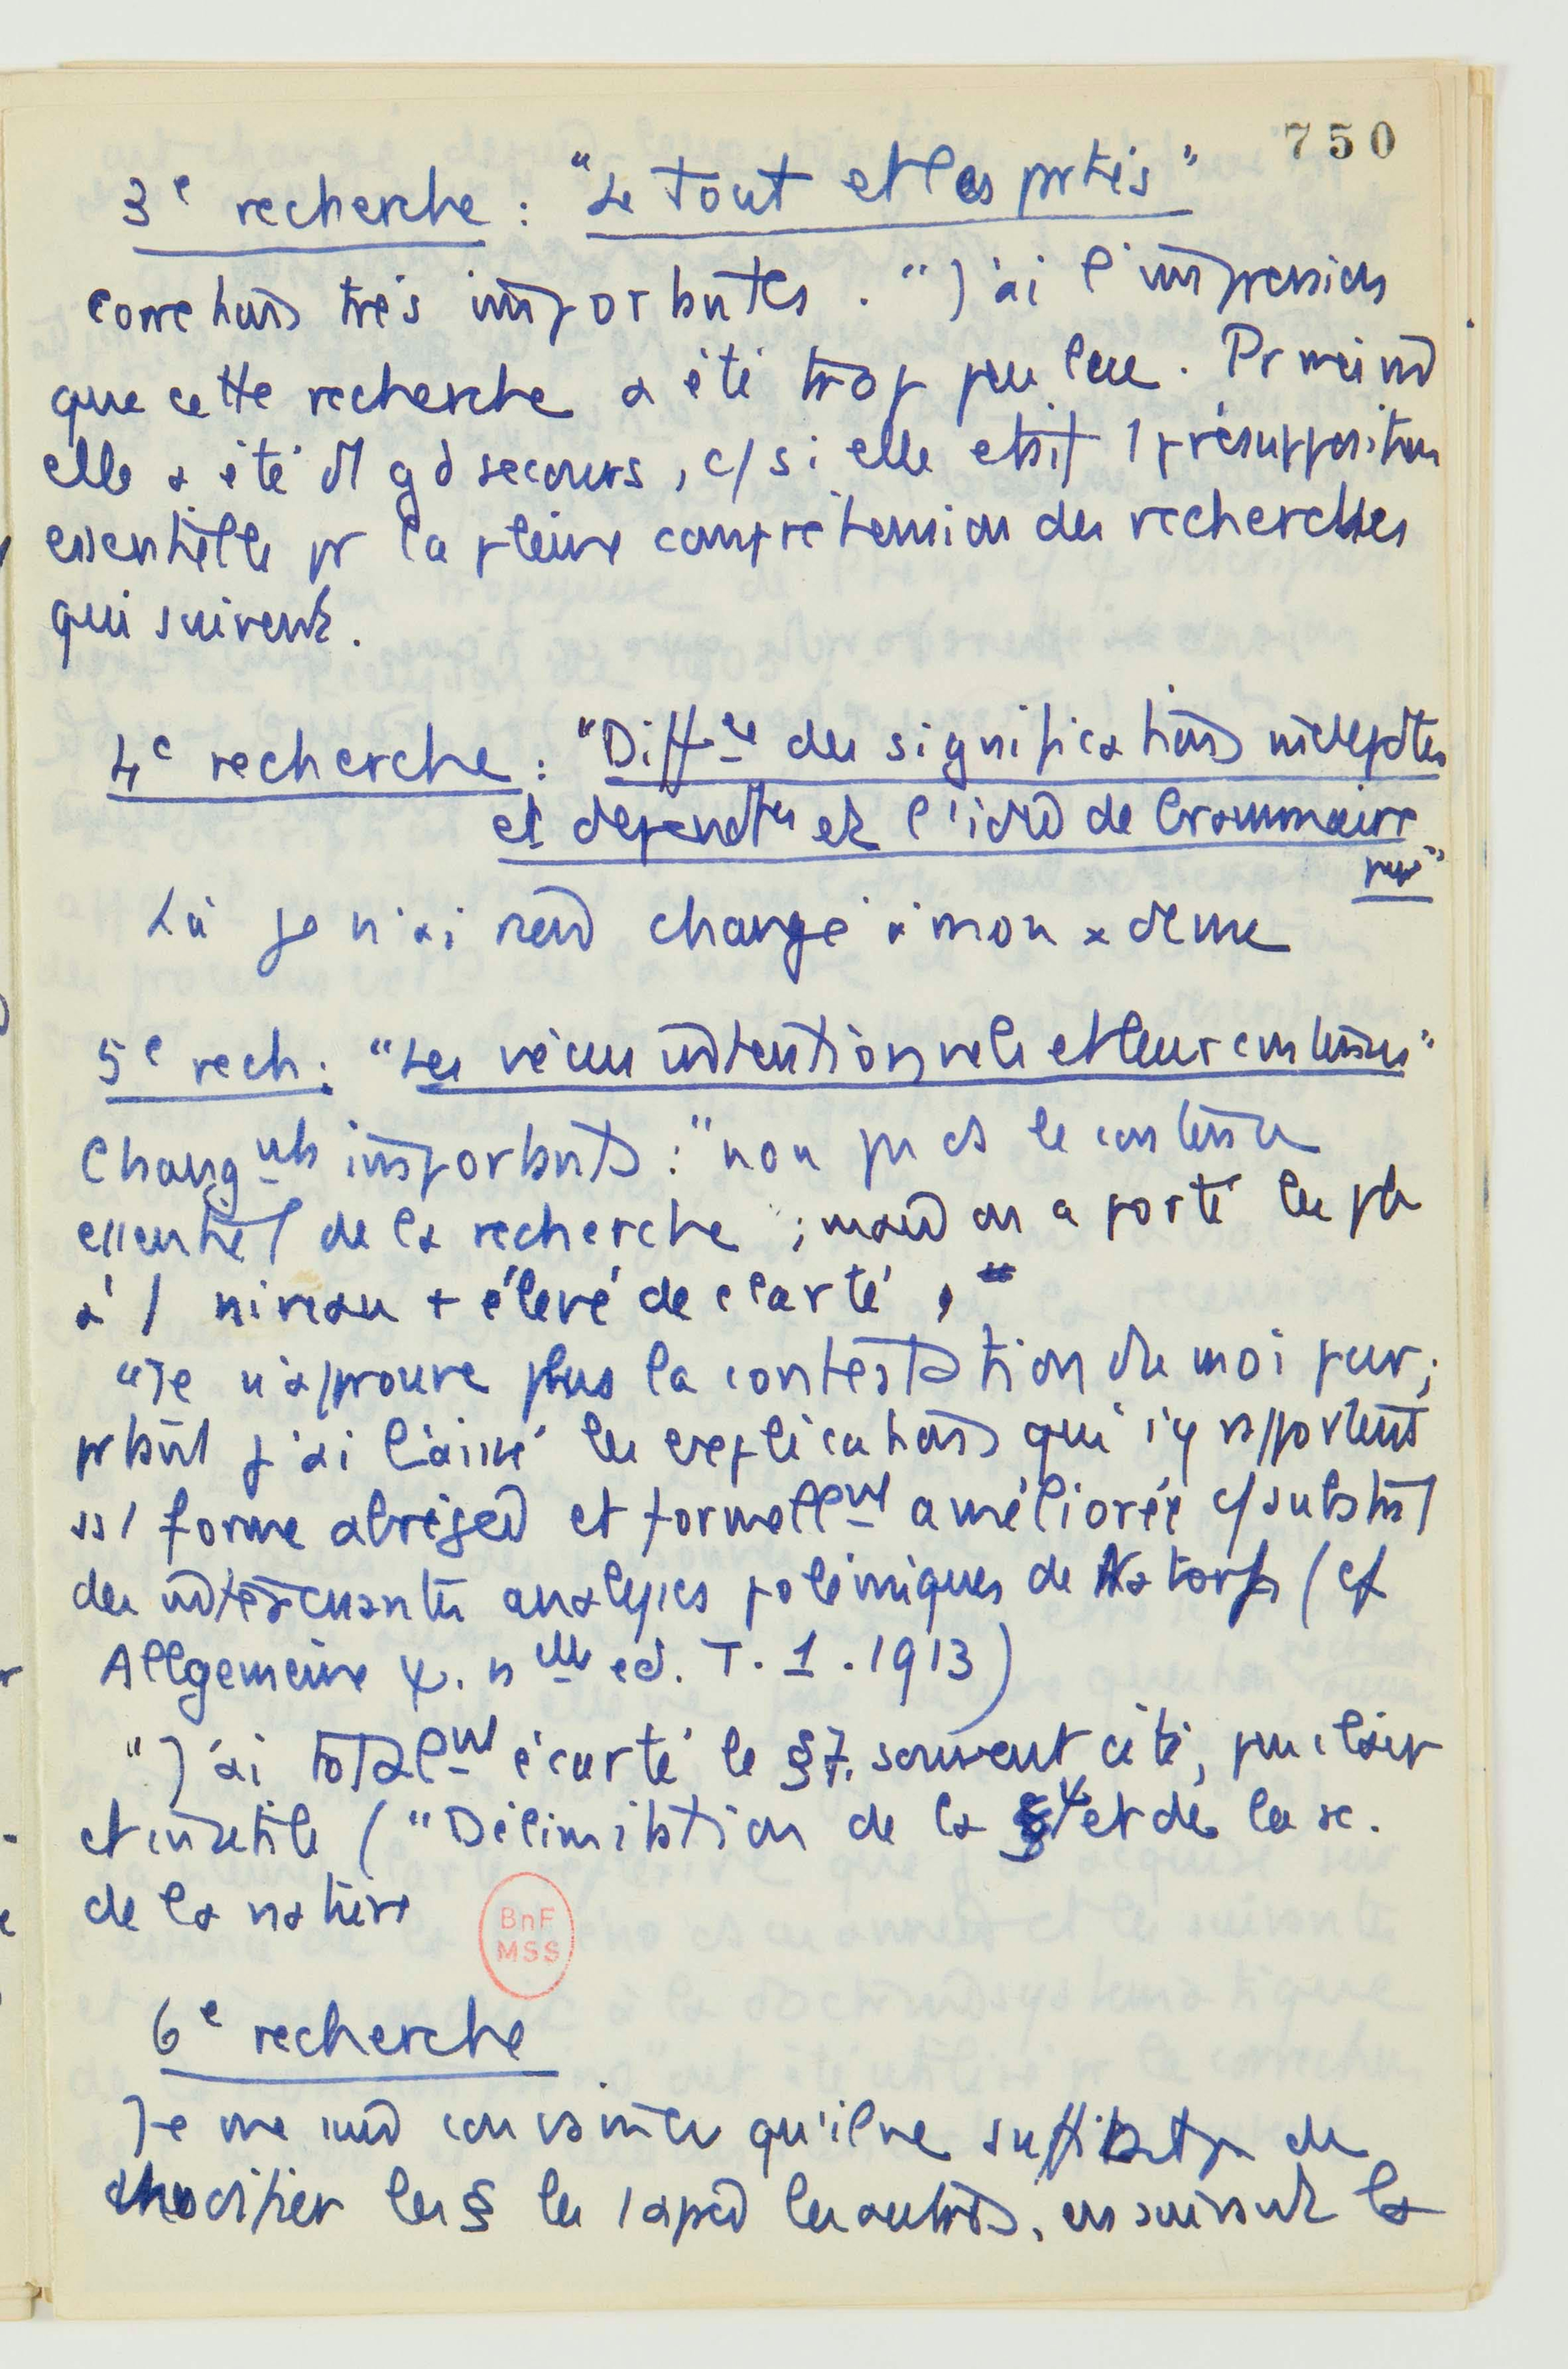 750
3e recherche : "Le tout et les prties"
corrections très importantes. "J'ai l'impression
que cette recherche a été trop peu lue. Pr moi
elle a été d'1 gd secours, c/ si elle était 1 présupposition
essentielle pr la pleine compréhension des recherches
qui suivent.
4e recherche : "Diffce des significations indepdtes
et dépendtes et l'idée de Grammaire
pure"
Là je n'ai rien changé à mon
5e rech : "Les vécus intentionnels et leur contenu"
Changnts importants : "non ps ds le contenu
essentiel de la recherche ; mais on a porté les ph
à 1 niveau + élevé de clarté,"
"Je n'approuve plus la contestation du moi pur ;
prtant j'ai laissé les explications qui s'y rapportent
ss 1 forme abrégée et formellent améliorée c/ substrat
des intéressantes analyses polémiques de Natorp (cf
Allgemeine ψ. nlle ed. T. 1. 1913)
"J'ai totalent écarté le §7. souvent cité, peu clair
et inutile ("Délimitation de la ψ et de la sc.
de la nature
6e recherche
Je me suis convaincu qu'il ne suffisait ps de
modifier les § les 1 après les autres, en suivant la